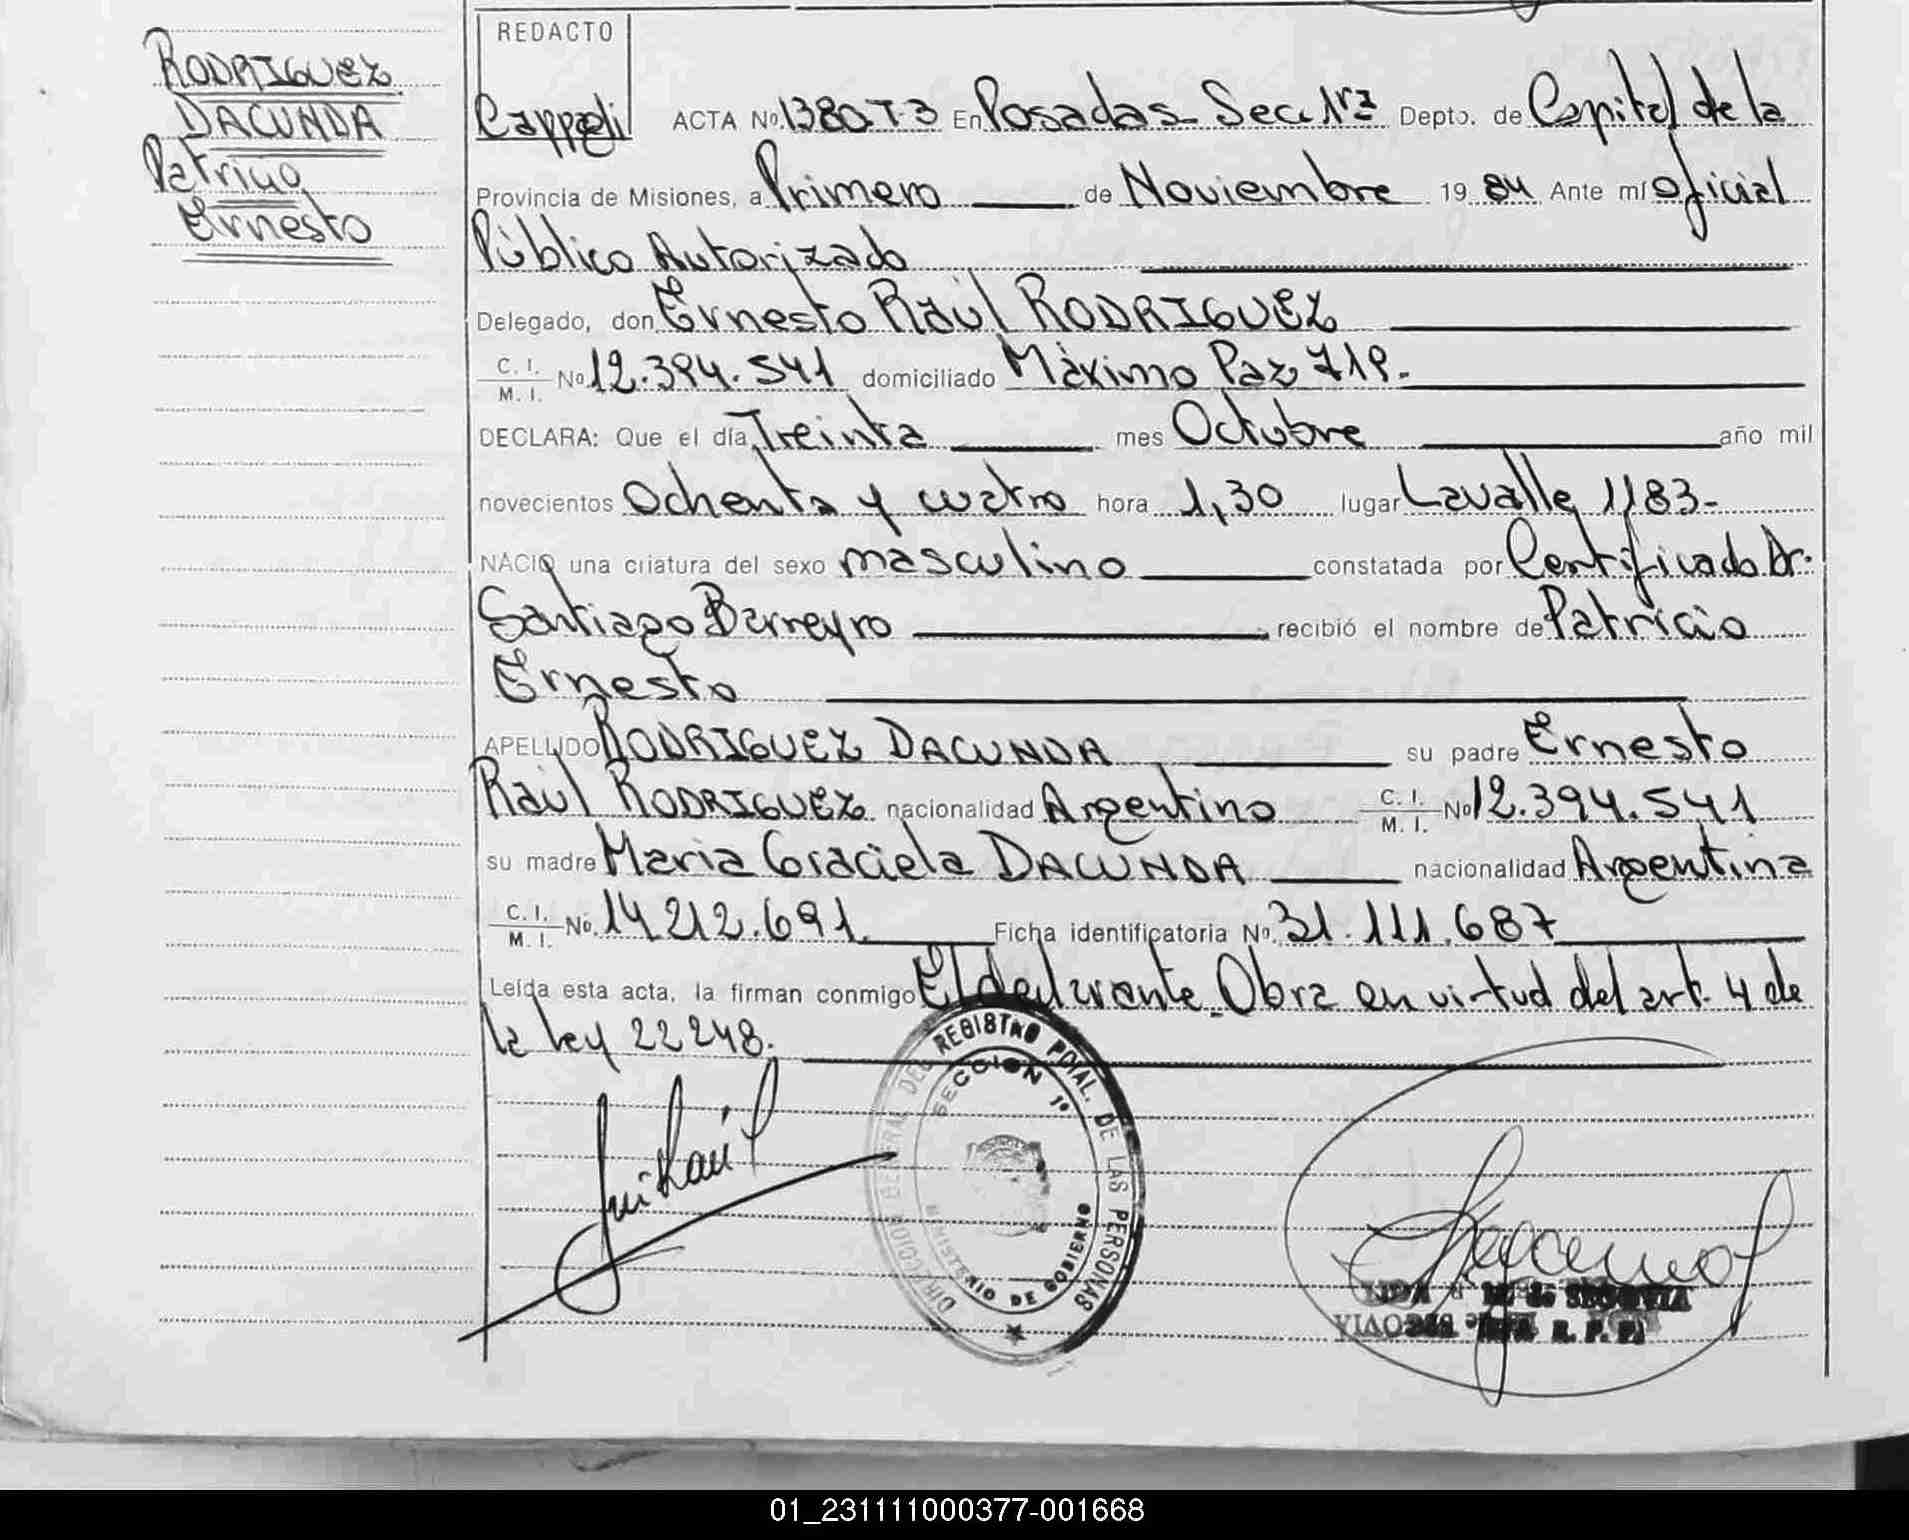 RODRIGUEZ
DACUNDA
Patricio
Ernesto
REDACTO
Cappeli ACTA No. 1380 T3 En Posadas - Sec. 1ra Depto. de Capital de la
Provincia de Misiones, a Primero de Noviembre 19 84 Ante mí Oficial
Público Autorizado
Delegado, don Ernesto Raúl RODRIGUEZ
C. I. M. I. No 12.394.541 domiciliado Máximo Paz 719.-
DECLARA: Que el día Treinta mes Octubre año mil
novecientos Ochenta y cuatro hora 1,30 lugar Lavalle 1183-
NACIO una criatura del sexo masculino constatada por Certificado Dr.
Santiago Barreyro recibió el nombre de Patricio
Ernesto
APELLIDO RODRIGUEZ DACUNDA su padre Ernesto
Raúl RODRIGUEZ nacionalidad Argentino C. I. M. I. No 12.394.541
su madre Maria Graciela DACUNDA nacionalidad Argentina
C. I. M. I. No. 14.212.691. Ficha identificatoria No. 31.111.687
Leída esta acta, la firman conmigo El declarante - Obra en virtud del art. 4 de
la ley 22248.
DIRECCION GENERAL DEL REGISTRO PCIAL. DE LAS PERSONAS
SECCION 1º
MINISTERIO DE GOBIERNO
DE SEGOVIA
R. P. P.
01_231111000377-001668